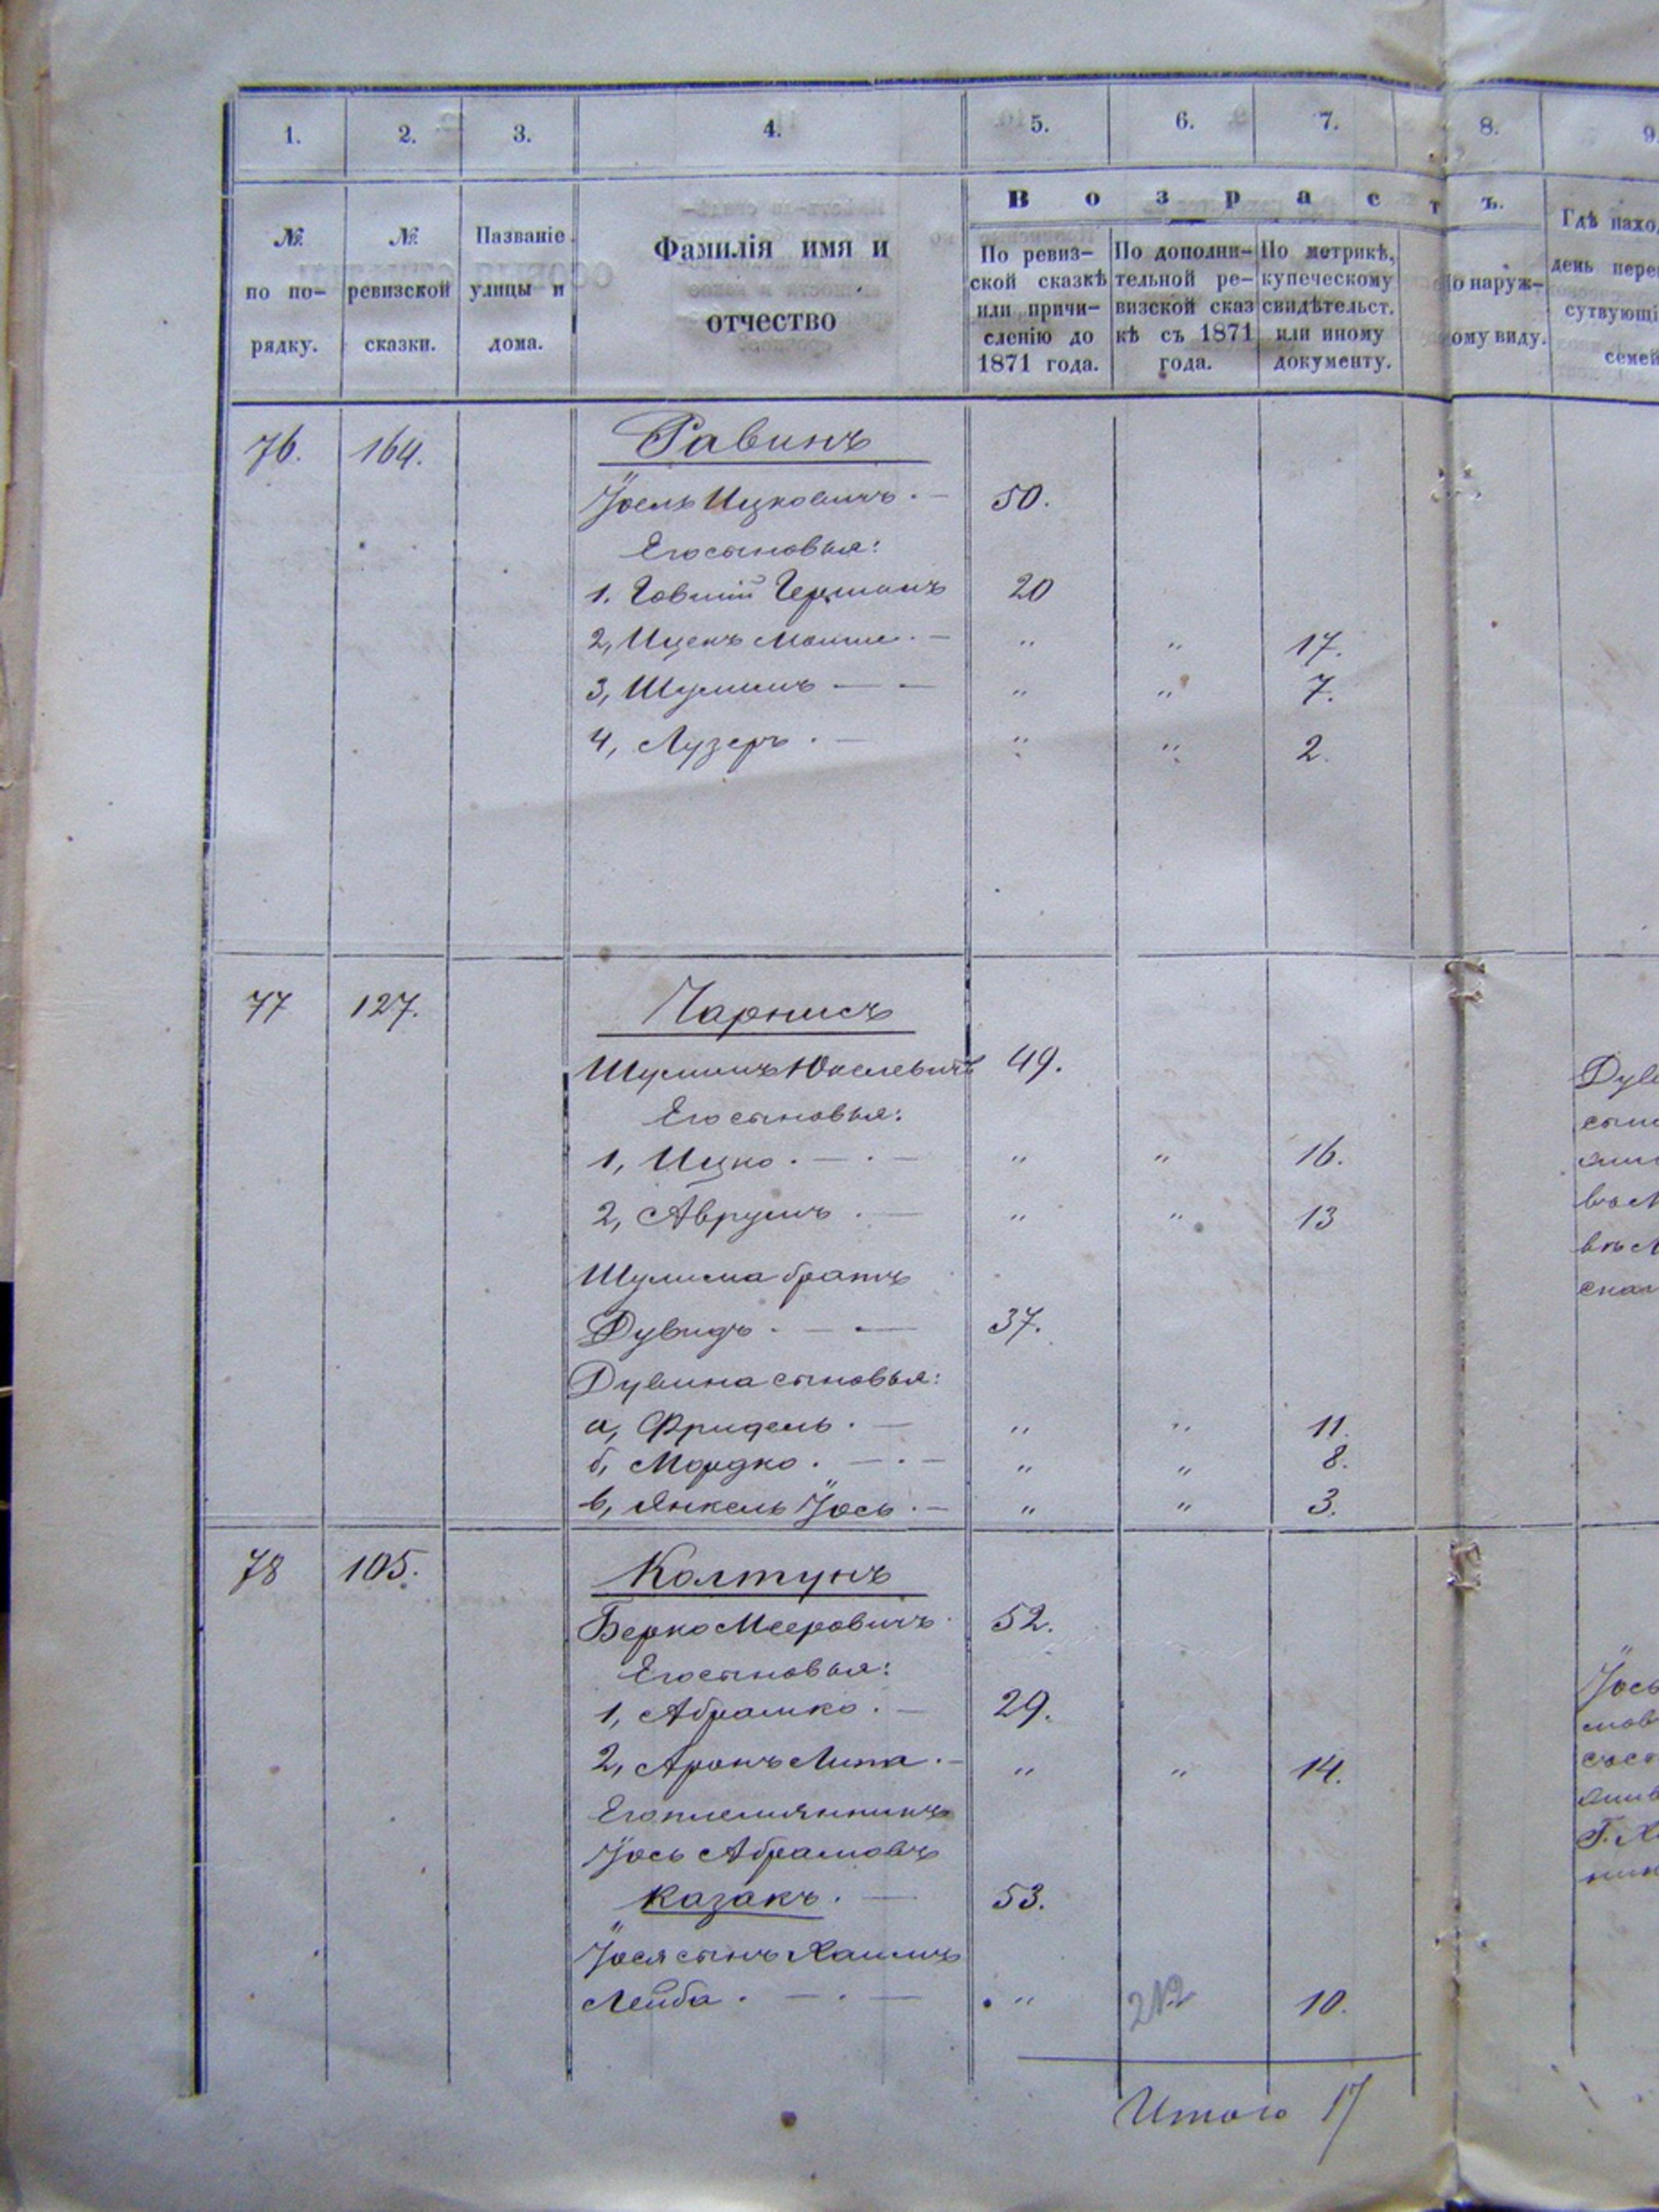 1. 2. 3. 4. 5. 6. 7. 8. 9.
В о з р а с т ъ.
№ по по- рядку.
№ ревизской сказки.
Названіе улицы и дома.
Фамилія имя и отчество
По ревиз- ской сказкѣ или причи- сленію до 1871 года.
По дополни- тельной ре- визской сказ кѣ съ 1871 года.
По метрикѣ, купеческому свидѣтельст. или иному документу.
По наруж- ному виду.
Гдѣ нахо
день пере
сутвующі
семей
76. 164. Равинъ
Іоель Ицковичъ. — 50.
Его сыновья:
1. Говшій Германъ 20
2, Ицекъ Мошко. — " " 17.
3, Шулимъ — — " " 7.
4, Лузеръ. — " " 2.
77 127. Чарнисъ
Шулимъ Юкелевичъ 49.
Его сыновья:
1, Ицко. — . — " " 16.
2, Аврумъ. — " " 13
Шулима братъ
Дувидъ. — . — 37.
Дувида сыновья:
а, Фридель. — " " 11.
б, Мордко. — . — " " 8.
в, Янкель Іось. — " " 3.
78 105. Колтунъ
Берко Мееровичъ. 52.
Его сыновья:
1, Абрамко. — 29.
2, Аронъ Липа. — " " 14.
Его племянникъ
Іось Абрамовъ
Казакъ. — 53.
Іося сынъ Хаимъ
Лейба. — . — " 10.
Итого 17